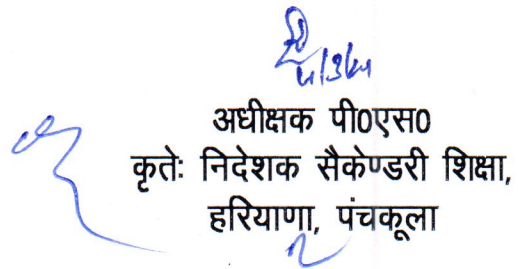 अधीक्षक पी0एस0
कृतेः निदेशक सैकेण्डरी शिक्षा,
हरियाणा, पंचकूला